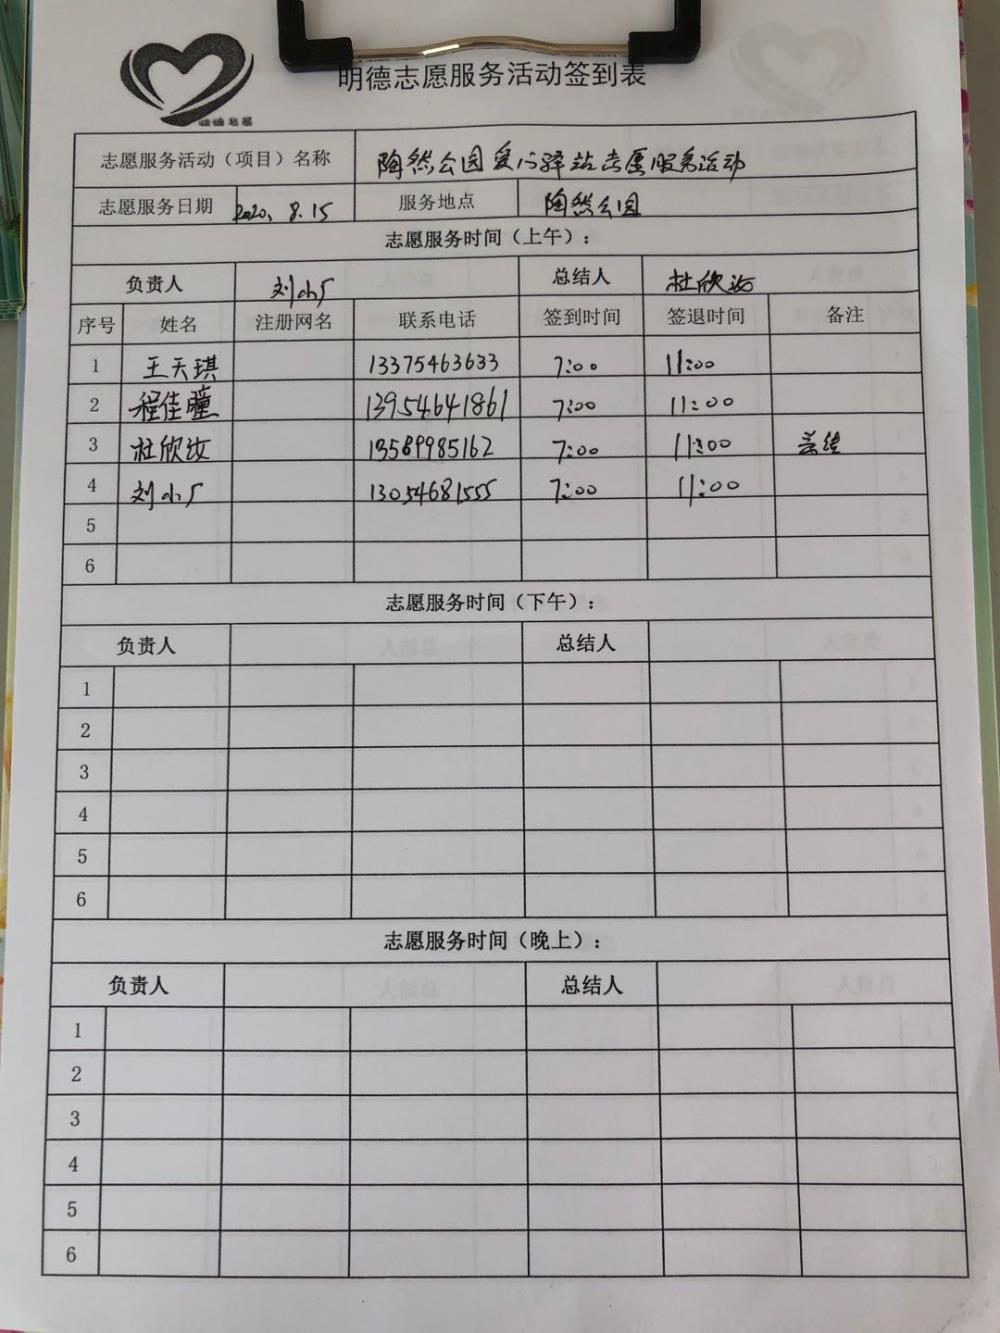 明德志愿服务活动签到表
志愿服务活动（项目）名称 陶然公园爱心驿站志愿服务活动
志愿服务日期 2020.8.15 服务地点 陶然公园
志愿服务时间（上午）：
负责人 刘小厂 总结人 杜欣汝
序号 姓名 注册网名 联系电话 签到时间 签退时间 备注
1 王天琪 13375463633 7:00 11:00
2 程佳瞳 13954641861 7:00 11:00
3 杜欣汝 13589985162 7:00 11:00 总结
4 刘小厂 13054681555 7:00 11:00
5
6
志愿服务时间（下午）：
负责人 总结人
1
2
3
4
5
6
志愿服务时间（晚上）：
负责人 总结人
1
2
3
4
5
6